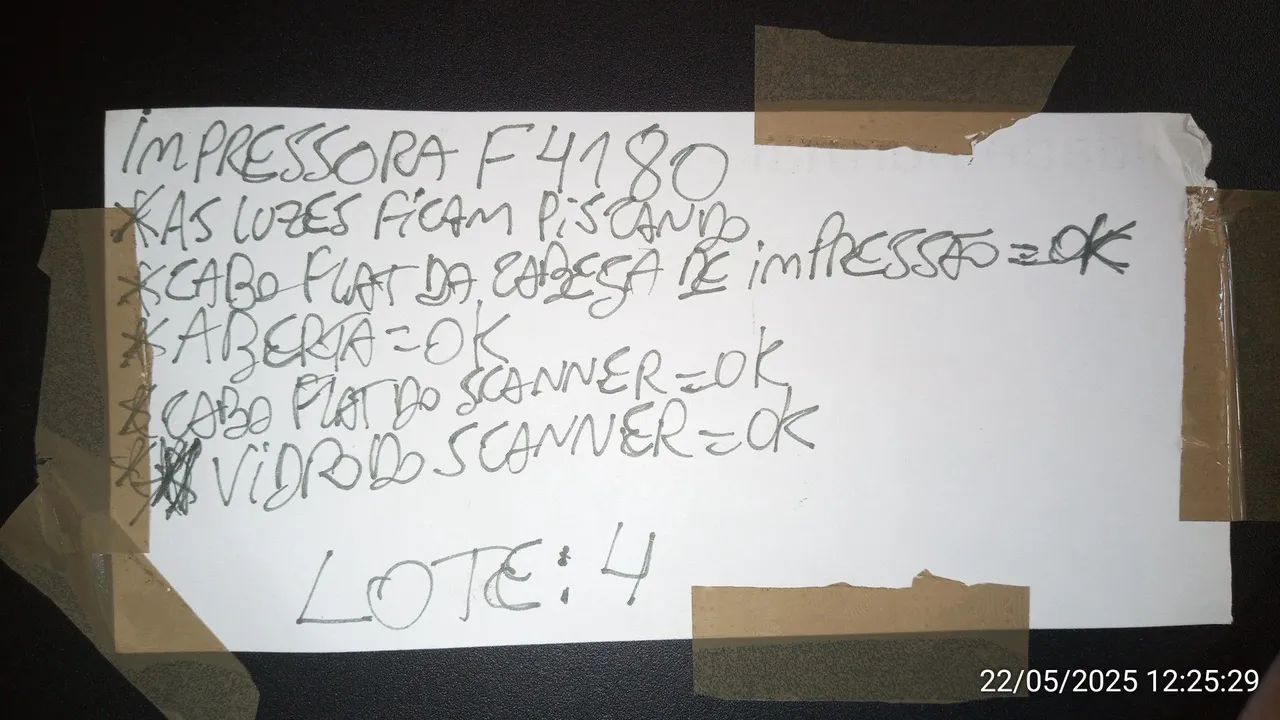 IMPRESSORA F4180
*AS LUZES FICAM PISCANDO
*CABO FLAT DA CABESA DE IMPRESSÃO=OK
*ABERTA=OK
*CABO FLAT DO SCANNER=OK
*VIDRO DO SCANNER=OK
LOTE:4
22/05/2025 12:25:29